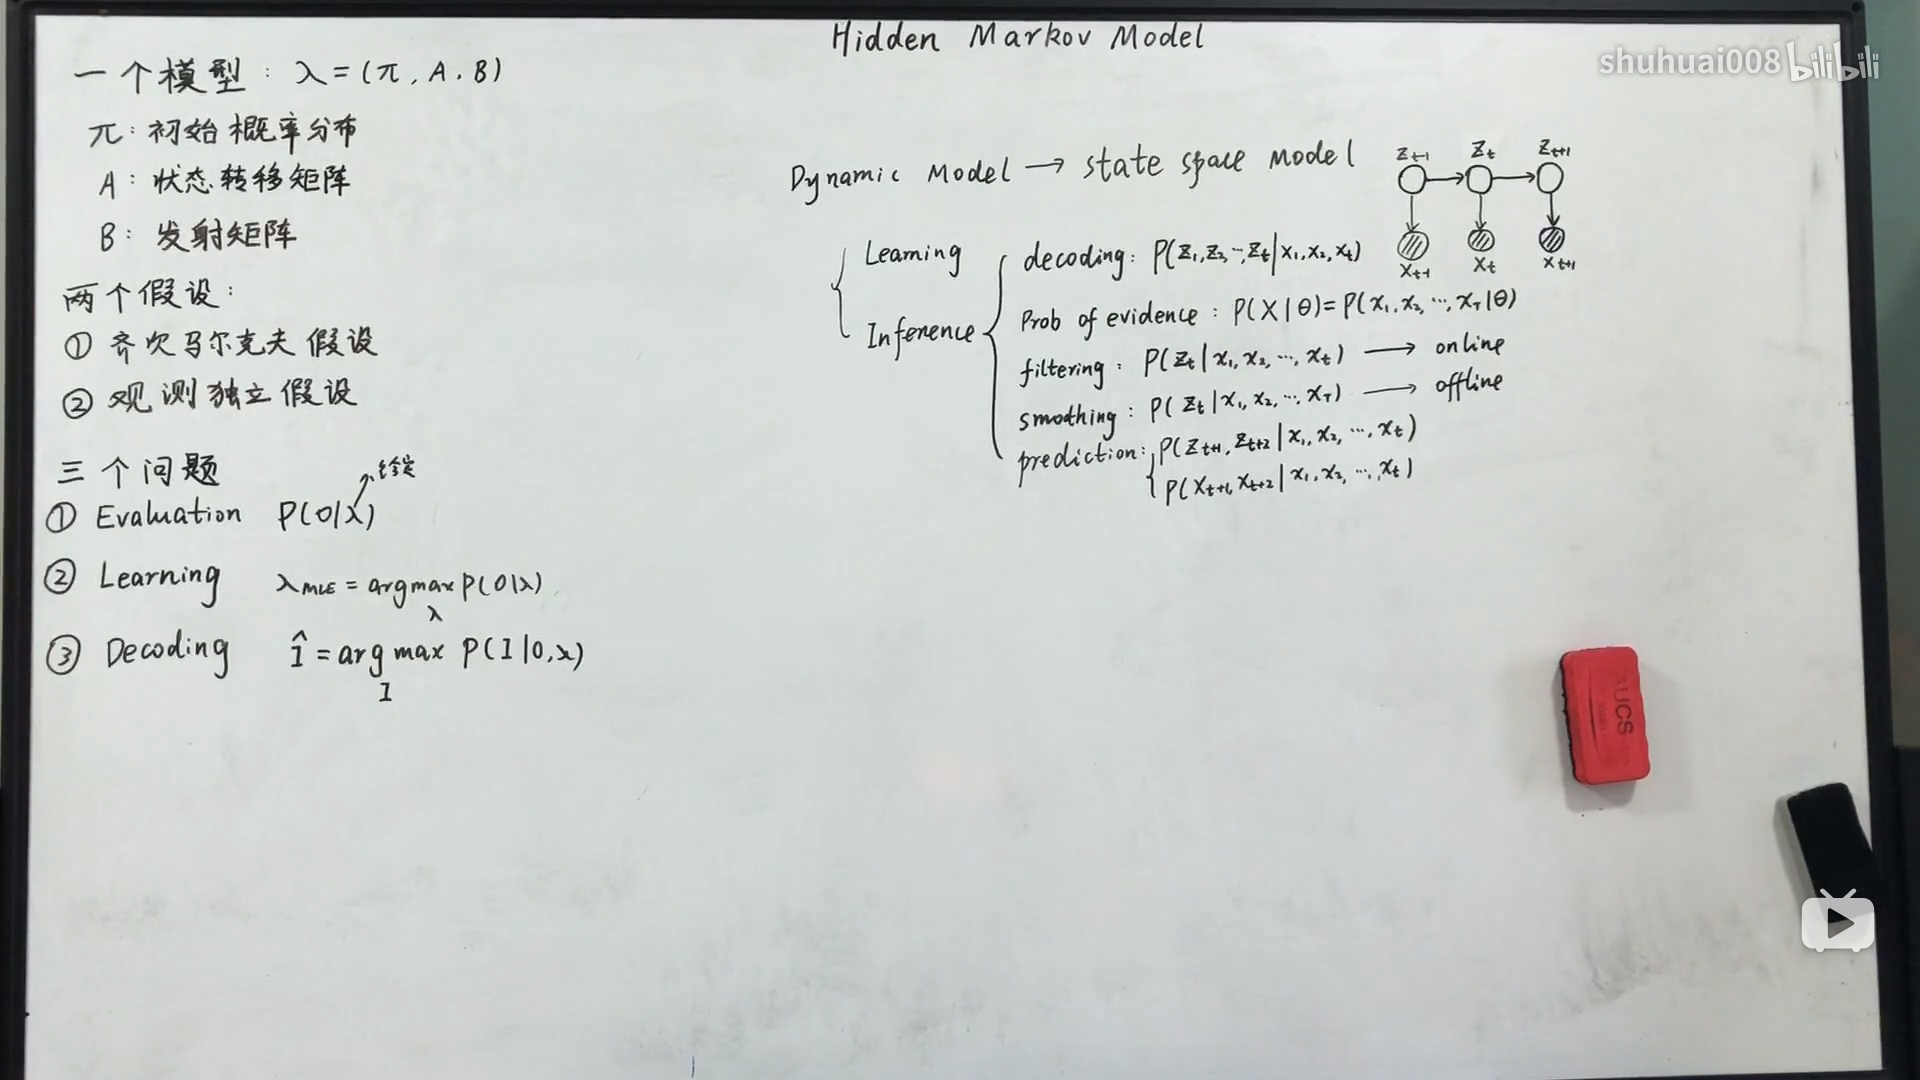 Hidden Markov Model
shuhuai008 bilibili
一个模型: λ=(π, A, B)
π: 初始概率分布
A: 状态转移矩阵
B: 发射矩阵
两个假设:
① 齐次马尔克夫假设
② 观测独立假设
三个问题
给定
① Evaluation P(O|λ)
② Learning λMLE = argmax P(O|λ)
λ
③ Decoding Î = arg max P(I|O,λ)
I
Dynamic Model → state space model
Zt-1 Zt Zt+1
Xt-1 Xt Xt+1
Learning
Inference
decoding: P(Z1,Z2,…,Zt|x1,x2,xt)
Prob of evidence: P(X|θ)=P(x1,x2,…,xT|θ)
filtering: P(Zt|x1,x2,…,xt) → online
smothing: P(Zt|x1,x2,…,xT) → offline
prediction: P(Zt+1,Zt+2|x1,x2,…,xt)
P(Xt+1,Xt+2|x1,x2,…,xt)
AUCS